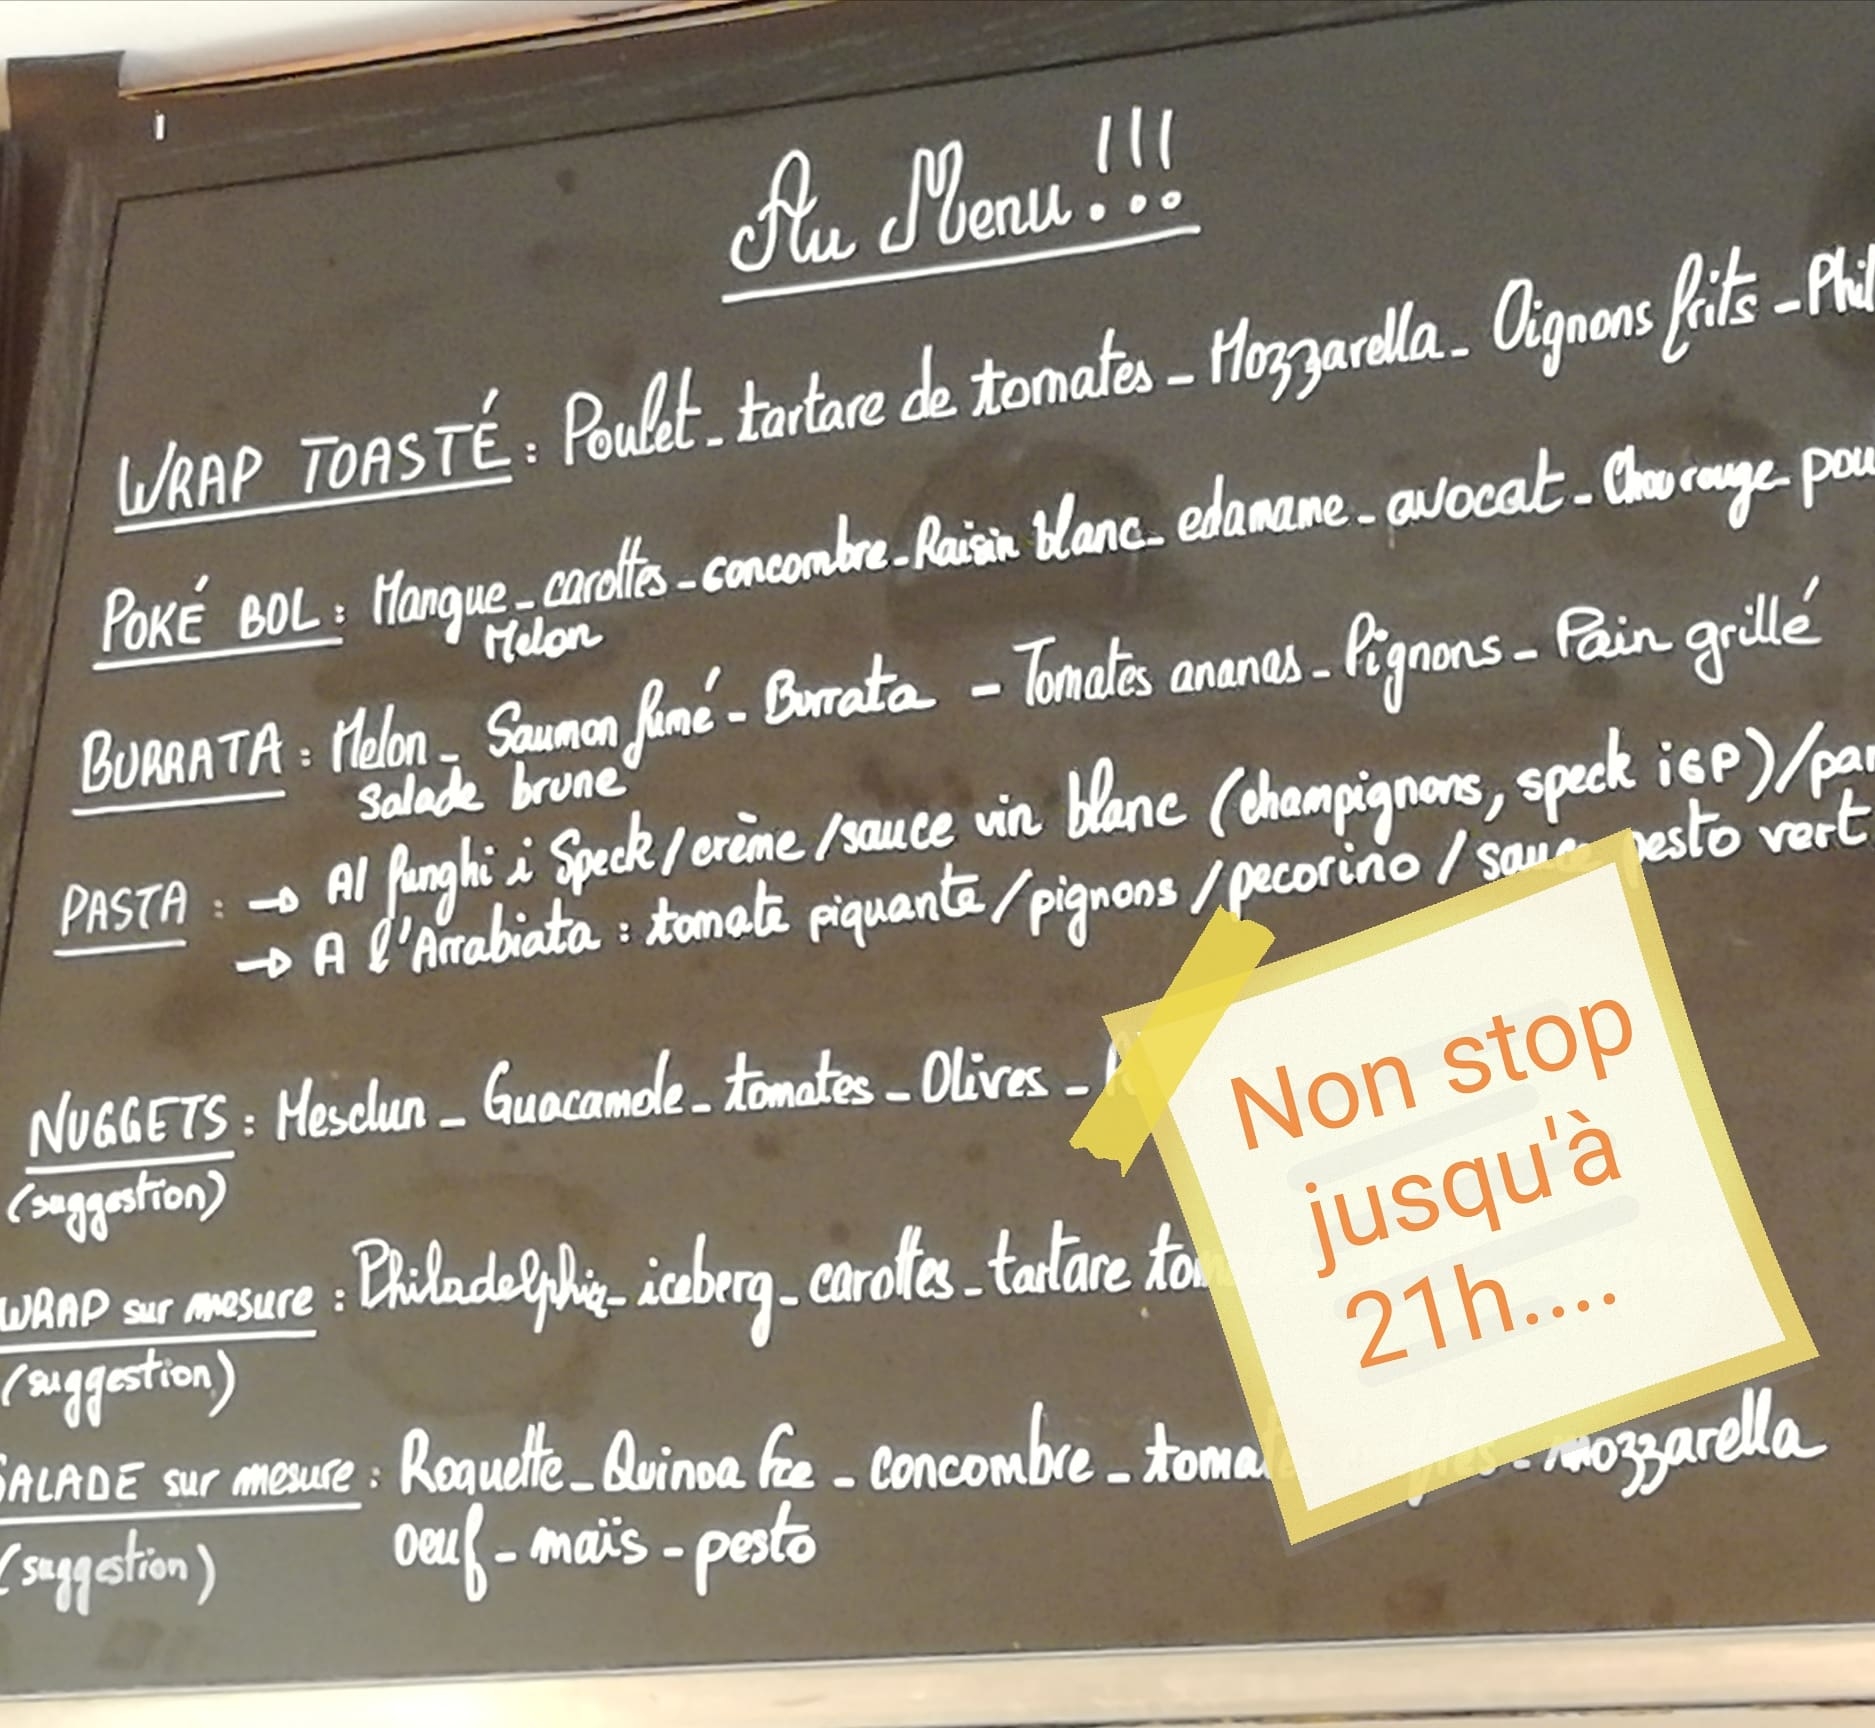 Au Menu !!!
WRAP TOASTÉ : Poulet - tartare de tomates - Mozzarella - Oignons frits -
POKÉ BOL : Mangue - carottes - concombre - Raisin blanc - edamame - avocat - Chou rouge
Melon
BURRATA : Melon - Saumon fumé - Burrata - Tomates ananas - Pignons - Pain grillé
Salade brune
PASTA : → Al funghi i Speck / crème / sauce vin blanc (champignons, speck iGP) /
→ A l'Arrabiata : tomate piquante / pignons / pecorino / sauce pesto vert
NUGGETS : Mesclun - Guacamole - tomates - Olives -
(suggestion)
WRAP sur mesure : Philadelphia - iceberg - carottes - tartare
(suggestion)
SALADE sur mesure : Roquette - Quinoa - concombre - - mozzarella
(suggestion) oeuf - maïs - pesto
Non stop
jusqu'à
21h....